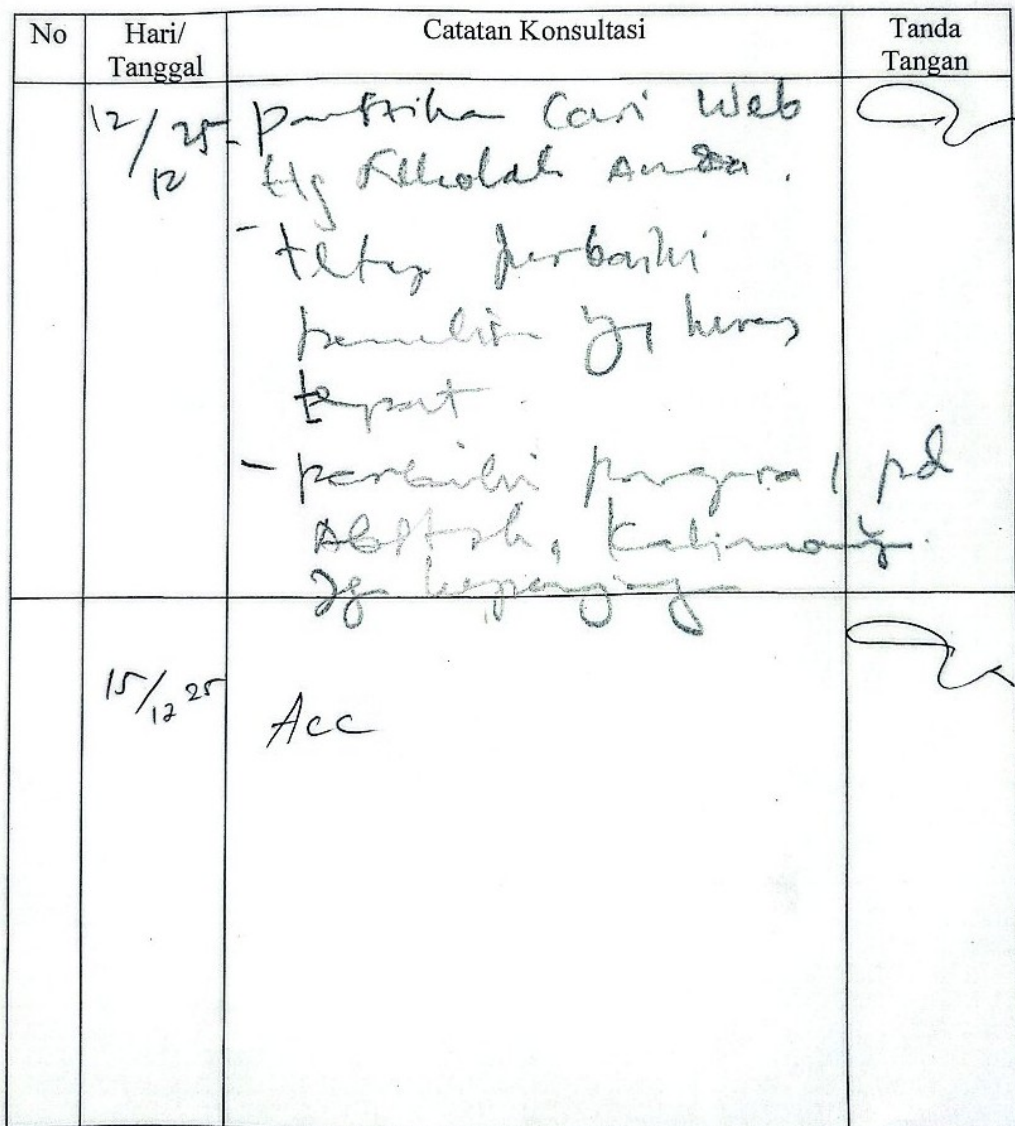 No Hari/ Tanggal Catatan Konsultasi Tanda Tangan
12/12 25 - pastikan Cari Web
ttg sekolah Anda.
- tetap perbaiki
penulisan yg kurang
tepat.
- perbaiki pd
Abstrak, Kalimat
kepanjangan
15/12 25 Acc